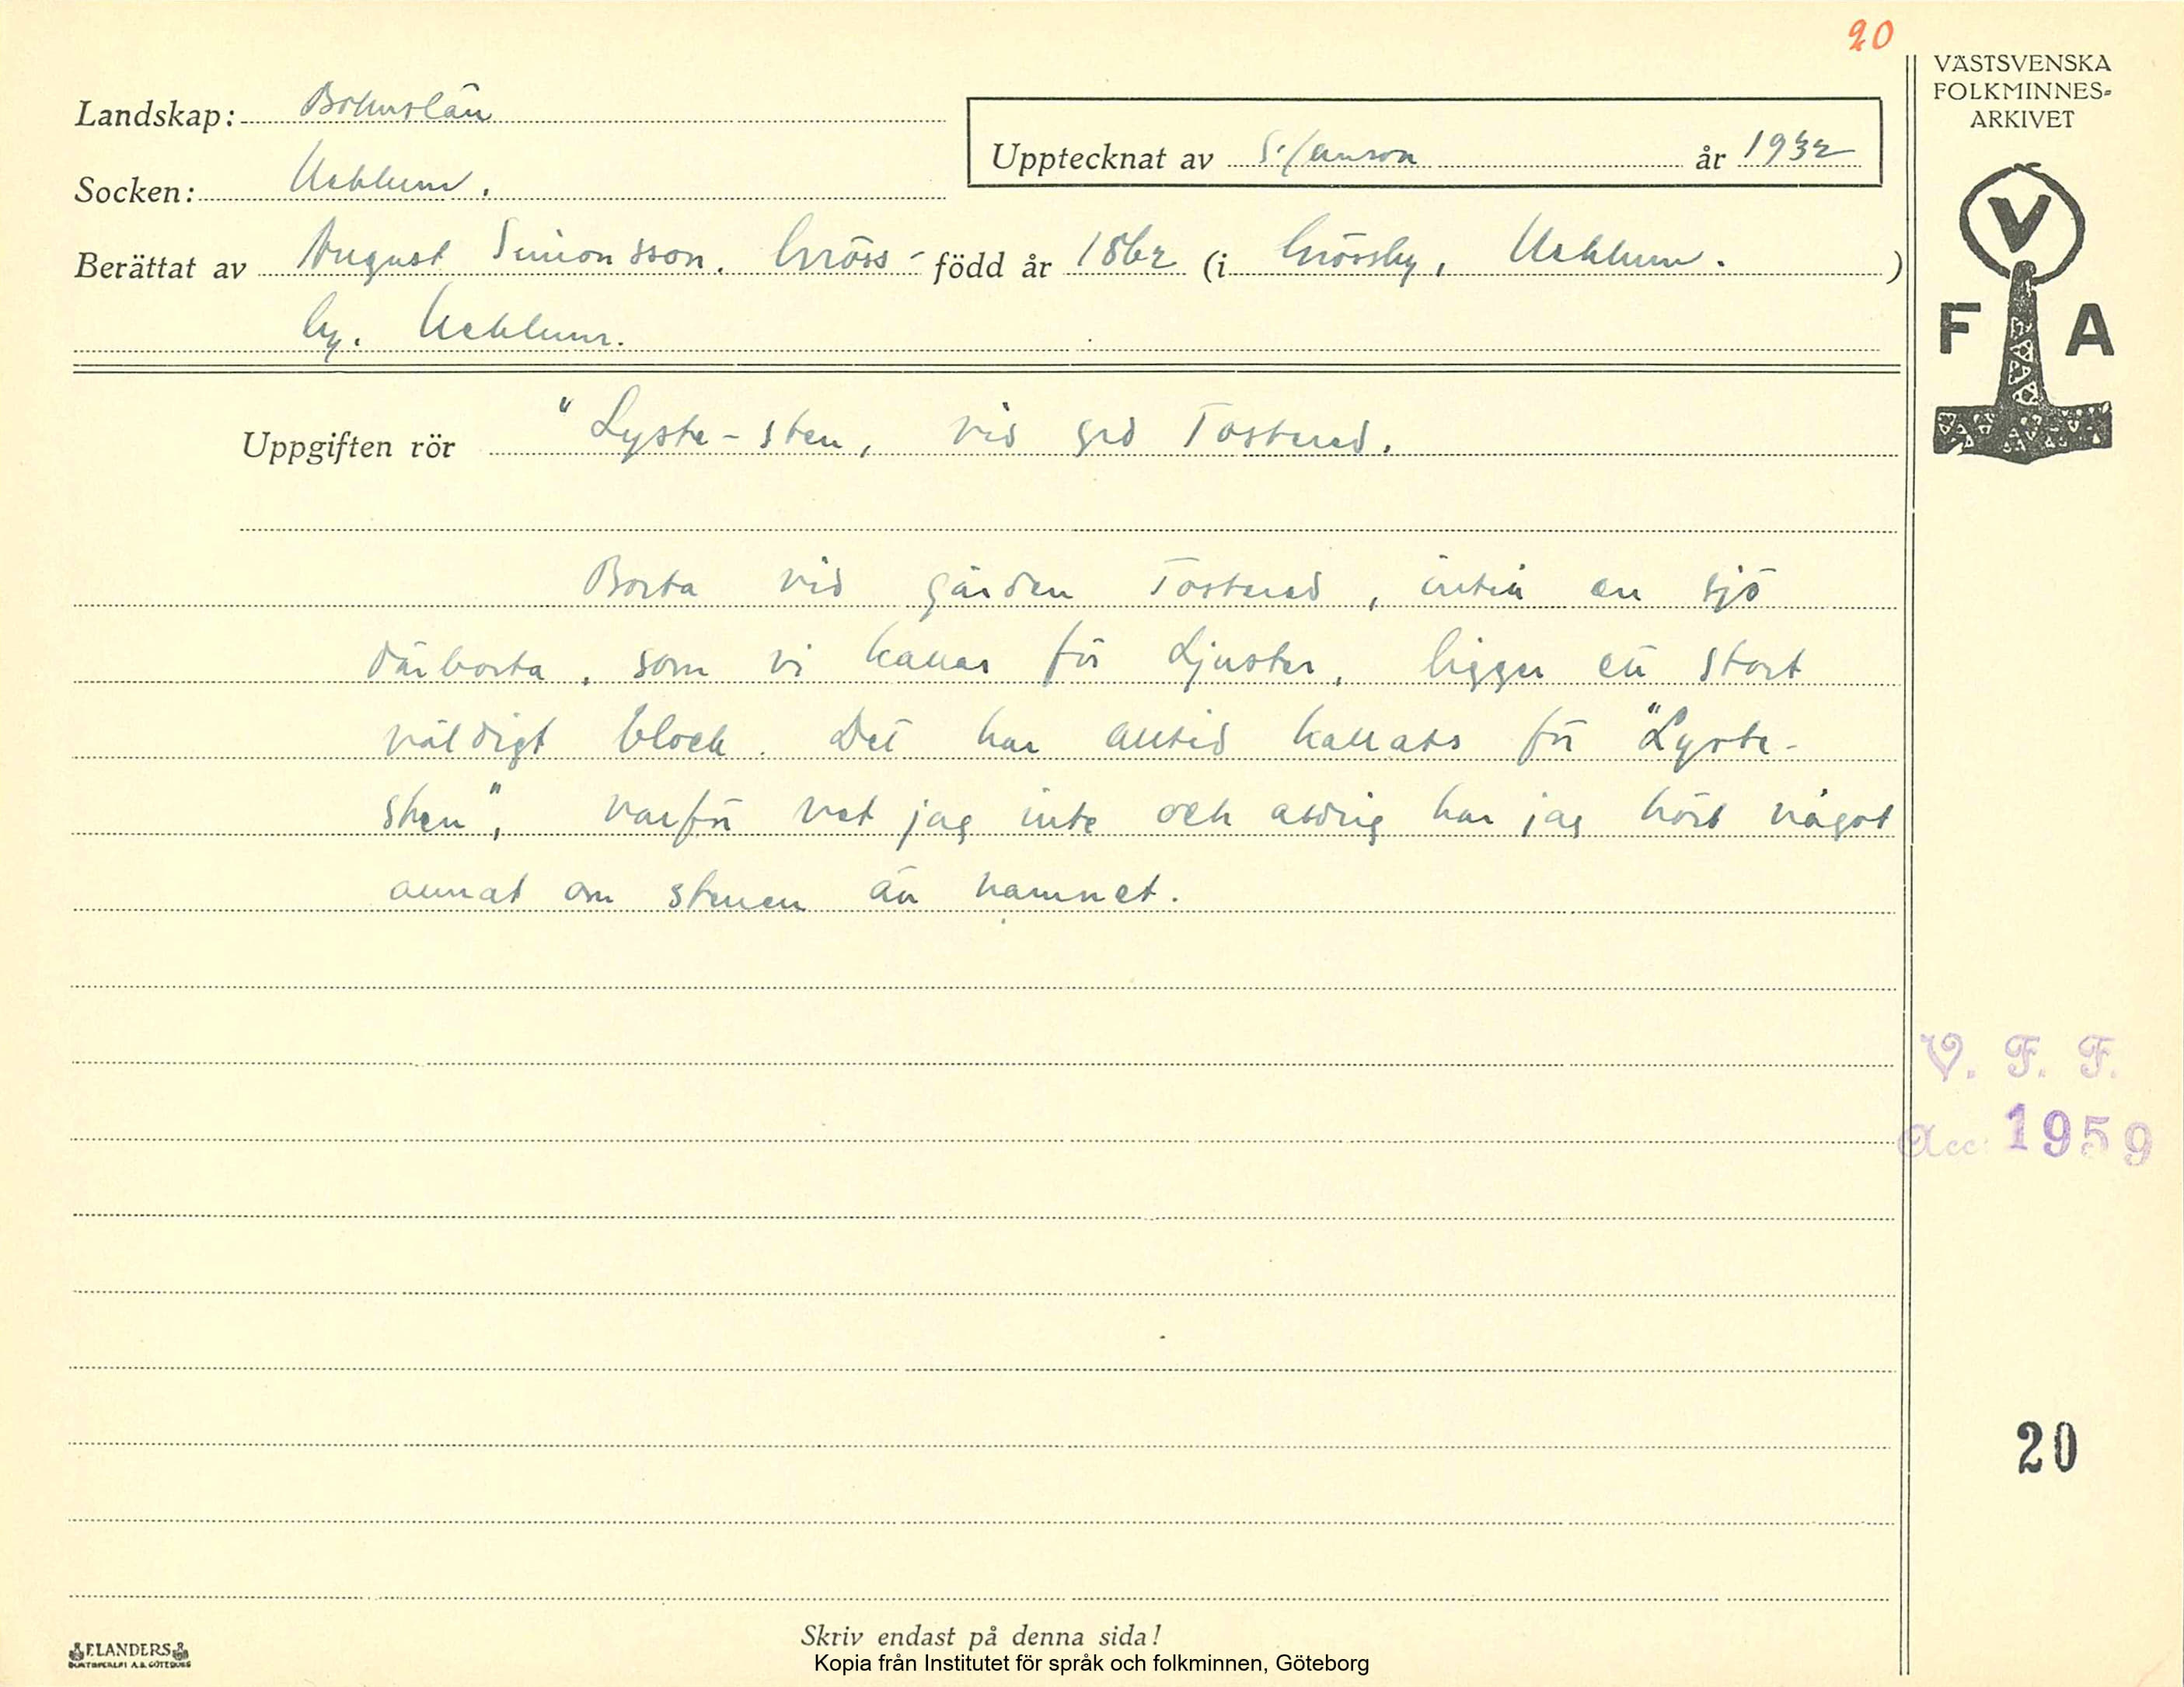 20
VÄSTSVENSKA
FOLKMINNES-
ARKIVET
Landskap: Bohuslän
Upptecknat av S. Janson år 1932
Socken: Ucklum.
Berättat av August Simonsson. Gröss- född år 1862 (i Grössby, Ucklum.)
by. Ucklum.
V
F A
Uppgiften rör "Lyste-sten, vid grd Tostered.
Borta vid gården Tostered, intill en sjö
därborta, som vi kallar för Ljuster, ligger ett stort
väldigt block. Det har alltid kallats för "Lyste-
sten", varför vet jag inte och aldrig har jag hört något
annat om stenen än namnet.
V. F. F.
Acc. 1959
20
Skriv endast på denna sida!
ELANDERS
Kopia från Institutet för språk och folkminnen, Göteborg